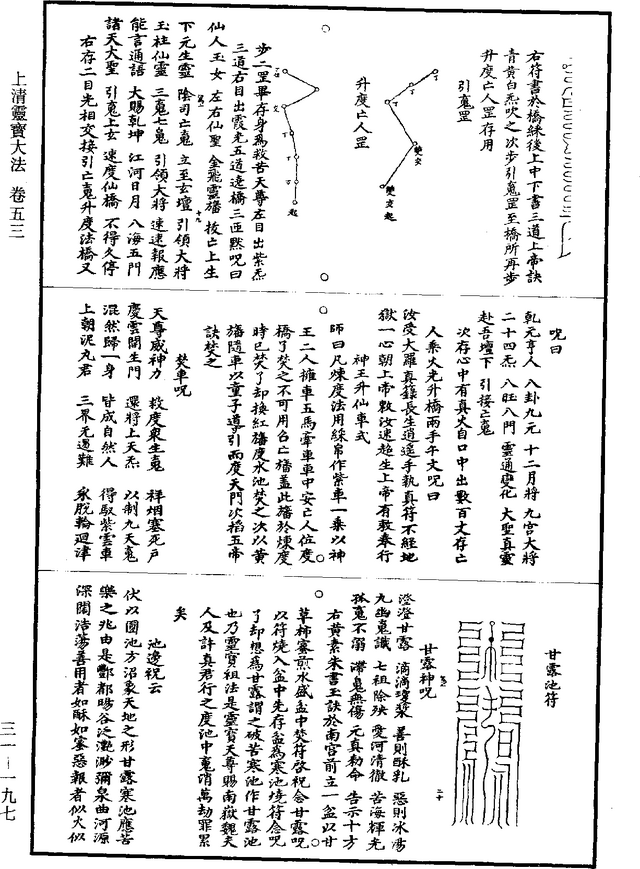 右符書於橋綵後上中下書三道上帝訣
青黃白炁吹之次步引䰟罡至橋所再步
升度亡人罡存用
引䰟罡
丁
丁
雙女
雙女起
升度亡人罡
丁
丁
丁
起
步二罡畢存身為救苦天尊左目出紫炁
三道右目出霞光五道遶橋三匝黙呪曰
仙人玉女 左右仙聖 金飛靈旛 拔亡上生
下元生靈 陰司亡䰟 立至玄壇 引領大將
玉柱仙靈 三䰟七䰟 引領大將 速速報應
能言通語 大賜乾坤 江河日月 八海五門
諸天大聖 引䰟上玄 速度仙橋 不得久停
右存二目先相交接引亡䰟升度法橋又
呪曰
乾元亨人 八卦九元 十二月將 九宮大將
二十四炁 八旺八門 靈通變化 大聖真靈
赴吾壇下 引接亡䰟
次存心中有真火自口中出數百丈存亡
人乘火光升橋兩手午文呪曰
汝受大羅真籙長生逍遥手執真符不經地
獄一心朝上帝敕汝速超生上帝有敕奉行
神王升仙車式
師曰凡煉度法用綵帛作紫車一乘以神
王二人擁車五馬牽車車中安亡人位度
橋了焚之不可用召亡旛蓋此旛於煉度
時已焚了却換紅旛度水池焚之次以黃
旛隨車以童子導引而度天門次搯五帝
訣焚之
焚車呪
天尊威神力 救度衆生䰟 祥烟塞死戶
慶雲開生門 還將上天炁 以制九天䰟
混然歸一身 皆成自然人 得馭紫雲車
上朝泥丸君 三界无遏難 永脫輪迴津
甘露池符
甘露神呪
澄澄甘露 滴滴瓊漿 善則酥乳 惡則冰湯
九幽䰟識 七祖除殃 愛河清徹 苦海輝光
孤䰟不溺 滯䰟無傷 元真勑命 告示十方
右黃素朱書玉訣於南宮前立一盆以甘
草柿蜜煎水盛盆中焚符啓祝念甘露呪
以符燒入盆中先存盆為寒池燒符念呪
了却想為甘露謂之破苦寒池作甘露池
也乃靈寶祖法是靈寶天尊賜南嶽魏夫
人及許真君行之度池中䰟消萬劫罪累
矣
池邊祝云
伏以圓池方沼象天地之形甘露寒池應苦
樂之兆由是酆都暘谷泛灔渺瀰泉曲河源
深闊浩蕩善用者如酥如蜜惡報者似火似
上清靈寶大法 卷五三
三一—一九七